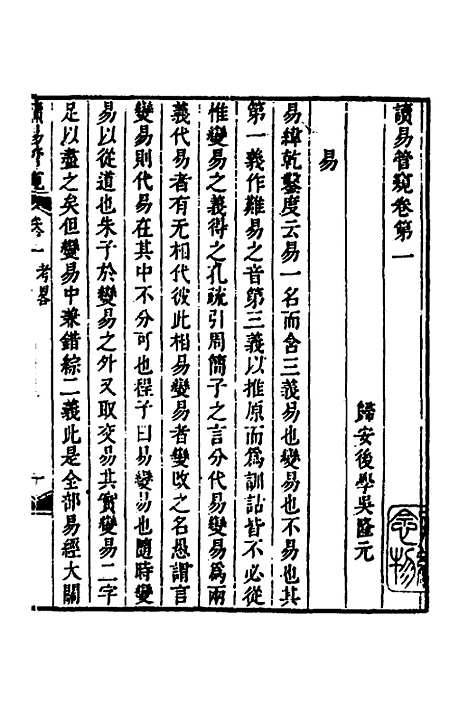 讀易管窺卷第一
歸安後學吳隆元
易
易緯乾鑿度云易一名而含三義易也變易也不易也其
第一義作難易之音第三義以推原而爲訓詁皆不必從
惟變易之義得之孔疏引周簡子之言分代易變易爲兩
義代易者有无相代彼此相易變易者變改之名恐謂言
變易則代易在其中不分可也程子曰易變易也隨時變
易以從道也朱子於變易之外又取交易其實變易二字
足以盡之矣但變易中兼錯綜二義此是全部易經大關
讀易管窺 卷一 考畧 一